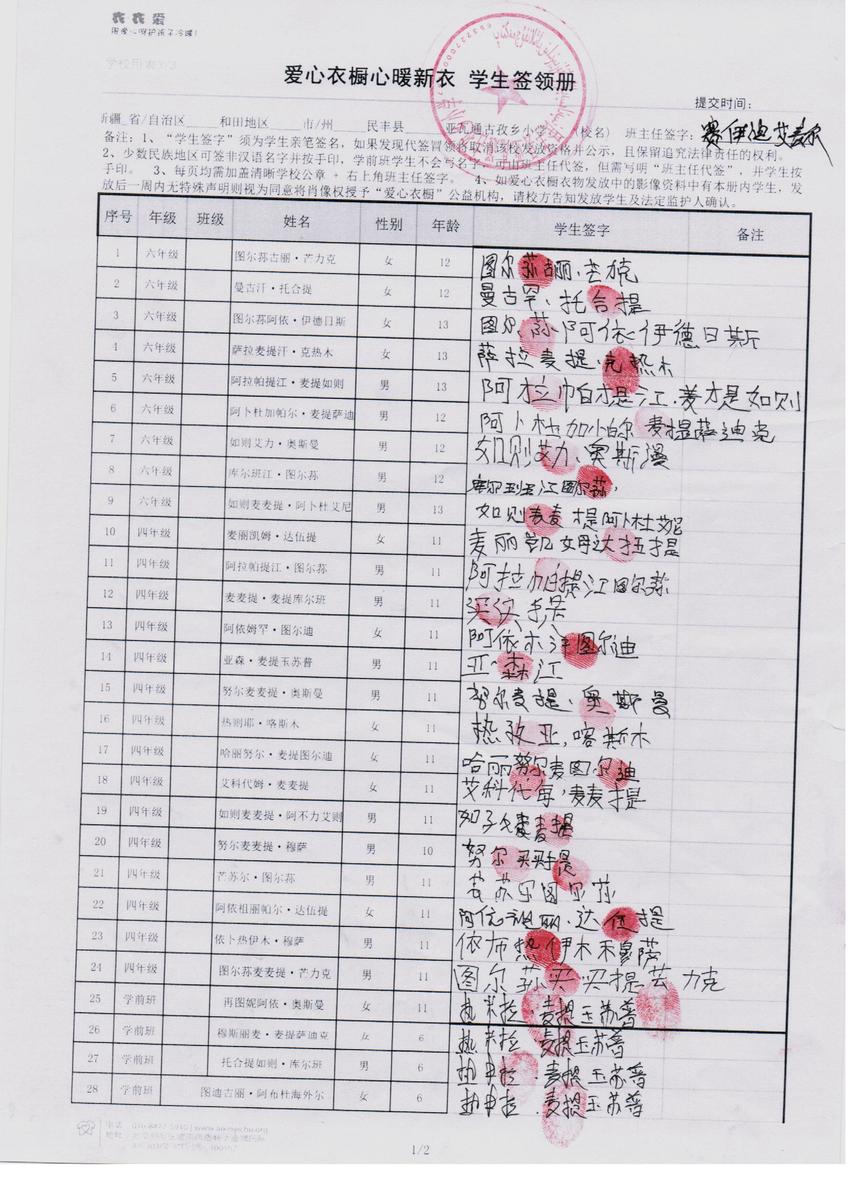 衣衣爱
用爱心呵护孩子冷暖!
爱心衣橱心暖新衣 学生签领册
提交时间:
新疆 省/自治区 和田地区 市/州 民丰县 亚瓦通古孜乡小学 (校名) 班主任签字: 赛伊迪艾麦尔
备注: 1、“学生签字”须为学生亲笔签名,如果发现代签冒领将取消该校发放资格并公示,且保留追究法律责任的权利。
2、少数民族地区可签非汉语名字并按手印,学前班学生不会写名字,可由班主任代签,但需写明“班主任代签”,并学生按
手印。 3、每页均需加盖清晰学校公章 + 右上角班主任签字。 4、如爱心衣橱衣物发放中的影像资料中有本册内学生,发
放后一周内无特殊声明则视为同意将肖像权授予“爱心衣橱”公益机构,请校方告知发放学生及法定监护人确认。
序号 年级 班级 姓名 性别 年龄 学生签字 备注
1 六年级 图尔荪古丽·芒力克 女 12 图尔荪古丽·芒力克
2 六年级 曼古汗·托合提 女 12 曼古罕·托合提
3 六年级 图尔荪阿依·伊德日斯 女 13 图尔荪·阿依·伊德日斯
4 六年级 萨拉麦提汗·克热木 女 13 萨拉麦提·克热木
5 六年级 阿拉帕提江·麦提如则 男 13 阿拉帕提江·麦提如则
6 六年级 阿卜杜加帕尔·麦提萨迪 男 12 阿卜杜加帕尔 麦提萨迪克
7 六年级 如则艾力·奥斯曼 男 12 如则艾力·奥斯漫
8 六年级 库尔班江·图尔荪 男 12 库尔班江图尔荪
9 六年级 如则麦麦提·阿卜杜艾尼 男 13 如则麦麦提阿卜杜艾尼
10 四年级 麦丽凯姆·达伍提 女 11 麦丽凯姆达伍提
11 四年级 阿拉帕提江·图尔荪 男 11 阿拉帕提江图尔荪
12 四年级 麦麦提·麦提库尔班 男 11
13 四年级 阿依姆罕·图尔迪 女 11 阿依木汗图尔迪
14 四年级 亚森·麦提玉苏普 男 11 亚森江
15 四年级 努尔麦麦提·奥斯曼 男 11 努尔麦提·奥斯曼
16 四年级 热则耶·喀斯木 女 11 热孜亚,喀斯木
17 四年级 哈丽努尔·麦提图尔迪 女 11 哈丽努尔麦图尔迪
18 四年级 艾科代姆·麦麦提 女 11 艾科代每,麦麦提
19 四年级 如则麦麦提·阿不力艾则 男 11 麦麦提
20 四年级 努尔麦麦提·穆萨 男 10 努尔买买提
21 四年级 芒苏尔·图尔荪 男 11 芒苏尔图尔荪
22 四年级 阿依祖丽帕尔·达伍提 女 11 阿依祖丽·达伍提
23 四年级 依卜热伊木·穆萨 男 11 依布热伊木穆萨
24 四年级 图尔荪麦麦提·芒力克 男 11 图尔荪买买提芒力克
25 学前班 再图妮阿依·奥斯曼 女 11 热米拉·麦提玉苏普
26 学前班 穆斯丽麦·麦提萨迪克 女 6 热米拉·麦提玉苏普
27 学前班 托合提如则·库尔班 男 6 麦提玉苏普
28 学前班 图迪古丽·阿布杜海外尔 女 6 麦提玉苏普
1/2